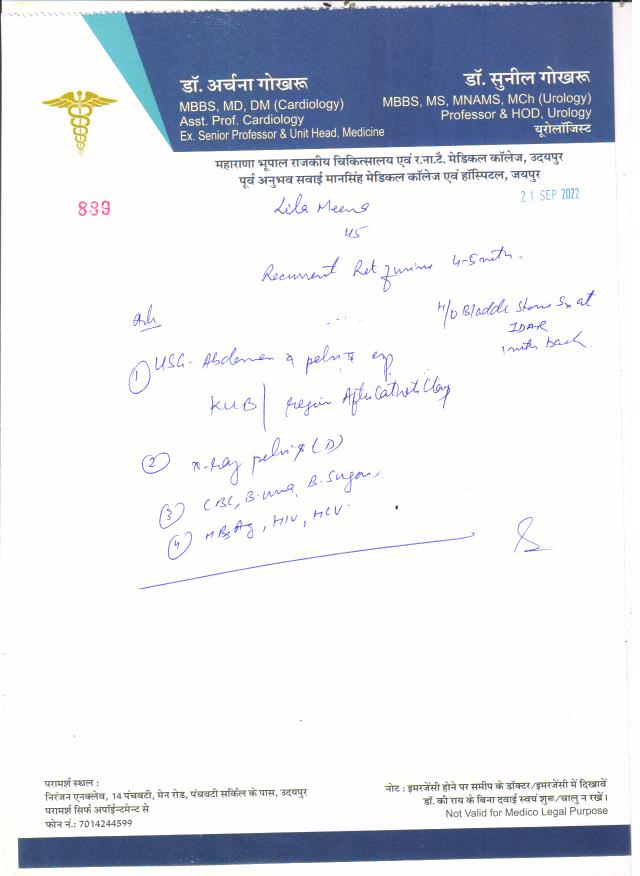 डॉ. अर्चना गोखरू
MBBS, MD, DM (Cardiology)
Asst. Prof. Cardiology
Ex. Senior Professor & Unit Head, Medicine
डॉ. सुनील गोखरू
MBBS, MS, MNAMS, MCh (Urology)
Professor & HOD, Urology
यूरोलॉजिस्ट
महाराणा भूपाल राजकीय चिकित्सालय एवं र.ना.टै. मेडिकल कॉलेज, उदयपुर
पूर्व अनुभव सवाई मानसिंह मेडिकल कॉलेज एवं हॉस्पिटल, जयपुर
889
21 SEP 2022
Lila Meena
45
Recurrent Ret of urine 4-5 mth.
H/O Bladder Stone Sx at
IDAR
1 mth back
① USG- Abdomen & pelvis
KUB region After
② X-ray pelvis (D)
③ CBC, B. urea, B. Sugar,
④ HBsAg, HIV, HCV
परामर्श स्थल :
निरंजन एनक्लेव, 14 पंचवटी, मेन रोड, पंचवटी सर्किल के पास, उदयपुर
परामर्श सिर्फ अपॉईन्टमेन्ट से
फोन नं.: 7014244599
नोट : इमरजेंसी होने पर समीप के डॉक्टर/इमरजेंसी में दिखावें
डॉ. की राय के बिना दवाई स्वयं शुरू/चालु न रखें।
Not Valid for Medico Legal Purpose